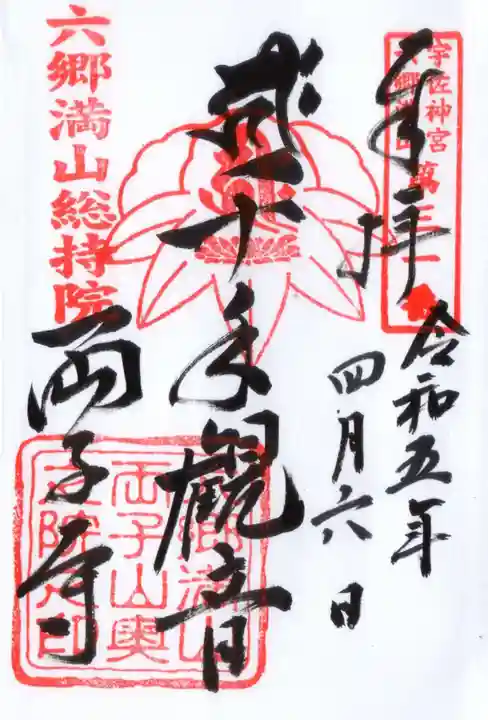 奉拝
令和五年
四月六日
手觀音
両子寺
宇佐神宮
六郷満山
六郷満山総持院
郷満山
両子山奥
之院之印